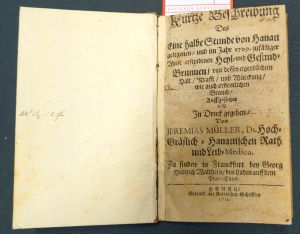 Kurtze Beschreibung
Des
Eine halbe Stunde von Hanau
gelegenen / und im Jahr 1709.
Weise erfundenen Heyl- und Gesund-
Brunnen / von dessen eigendlichem
Halt / Krafft / und Würckung /
wie auch ordentlichen
Brauch /
Auffgesetzet
und
In Druck gegeben /
Von
JEREMIAS MÜLLER, Dr. Hoch-
Gräfflich - Hanauischen Rath
und Leib-Medico.
Zu finden in Franckfurt bey Georg
Heinrich Walthern / den Laden auff dem
Pfarr-Eisen.
HANAU /
Gedruckt mit Schrifften